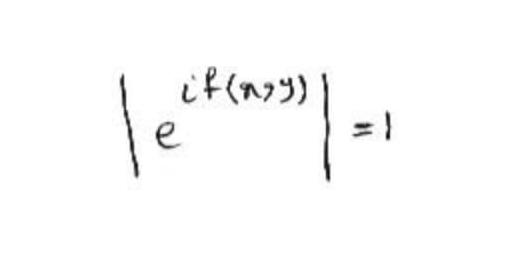 | e^{if(x,y)} | = 1